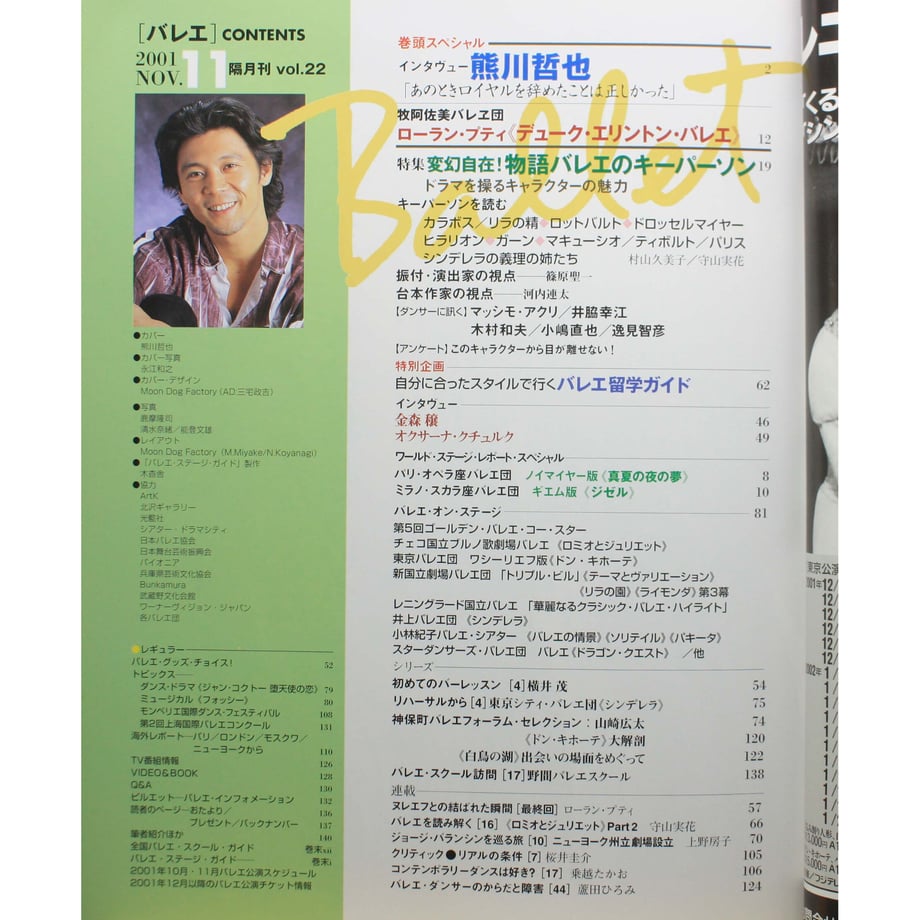 [バレエ] CONTENTS
2001
NOV. 11 隔月刊 vol.22
●カバー
熊川哲也
●カバー写真
永江和之
●カバー・デザイン
Moon Dog Factory (AD:三宅政吉)
●写真
鹿摩隆司
清水奈緒／能登文雄
●レイアウト
Moon Dog Factory (M.Miyake/N.Koyanagi)
●「バレエ・ステージ・ガイド」製作
木杳舎
●協力
ArtK
北沢ギャラリー
光藍社
シアター・ドラマシティ
日本バレエ協会
日本舞台芸術振興会
パイオニア
兵庫県芸術文化協会
Bunkamura
武蔵野文化会館
ワーナーヴィジョン・ジャパン
各バレエ団
●レギュラー
バレエ・グッズ・チョイス! 52
トピックス
ダンス・ドラマ《ジャン・コクトー 堕天使の恋》 79
ミュージカル《フォッシー》 80
モンペリエ国際ダンス・フェスティバル 108
第2回上海国際バレエコンクール 131
海外レポート―パリ／ロンドン／モスクワ／
ニューヨークから 110
TV番組情報 126
VIDEO&BOOK 128
Q&A 130
ピルエット―バレエ・インフォメーション 132
読者のページ―おたより／
プレゼント／バックナンバー 137
筆者紹介ほか 140
全国バレエ・スクール・ガイド 巻末xii
バレエ・ステージ・ガイド 巻末i
2001年10月・11月バレエ公演スケジュール
2001年12月以降のバレエ公演チケット情報
Ballet
巻頭スペシャル
インタヴュー 熊川哲也 2
「あのときロイヤルを辞めたことは正しかった」
牧阿佐美バレヱ団
ローラン・プティ《デューク・エリントン・バレエ》 12
特集 変幻自在!物語バレエのキーパーソン 19
ドラマを操るキャラクターの魅力
キーパーソンを読む
カラボス／リラの精◆ロットバルト◆ドロッセルマイヤー
ヒラリオン◆ガーン◆マキューシオ／ティボルト／パリス
シンデレラの義理の姉たち 村山久美子／守山実花
振付・演出家の視点――篠原聖一
台本作家の視点――河内連太
【ダンサーに訊く】マッシモ・アクリ／井脇幸江
木村和夫／小嶋直也／逸見智彦
【アンケート】このキャラクターから目が離せない!
特別企画
自分に合ったスタイルで行くバレエ留学ガイド 62
インタヴュー
金森 穣 46
オクサーナ・クチュルク 49
ワールド・ステージ・レポート・スペシャル
パリ・オペラ座バレエ団 ノイマイヤー版《真夏の夜の夢》 8
ミラノ・スカラ座バレエ団 ギエム版《ジゼル》 10
バレエ・オン・ステージ 81
第5回ゴールデン・バレエ・コー・スター
チェコ国立ブルノ歌劇場バレエ《ロミオとジュリエット》
東京バレエ団 ワシーリエフ版《ドン・キホーテ》
新国立劇場バレエ団「トリプル・ビル」《テーマとヴァリエーション》
《リラの園》《ライモンダ》第3幕
レニングラード国立バレエ「華麗なるクラシック・バレエ・ハイライト」
井上バレエ団《シンデレラ》
小林紀子バレエ・シアター《バレエの情景》《ソリテイル》《パキータ》
スターダンサーズ・バレエ団 バレエ《ドラゴン・クエスト》 ／他
シリーズ
初めてのバーレッスン [4]横井 茂 54
リハーサルから[4]東京シティ・バレエ団《シンデレラ》 75
神保町バレエフォーラム・セレクション:山崎広太 74
《ドン・キホーテ》大解剖 120
《白鳥の湖》出会いの場面をめぐって 122
バレエ・スクール訪問[17]野間バレエスクール 138
連載
ヌレエフとの結ばれた瞬間[最終回]ローラン・プティ 57
バレエを読み解く[16]《ロミオとジュリエット》Part2 守山実花 66
ジョージ・バランシンを巡る旅[10]ニューヨーク州立劇場設立 上野房子 70
クリティック●リアルの条件[7]桜井圭介 105
コンテンポラリーダンスは好き?[17]乗越たかお 106
バレエ・ダンサーのからだと障害[44]蘆田ひろみ 124